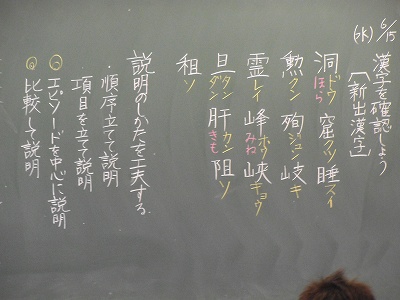 6/15
漢字を確認しよう
〔新出漢字〕
洞ドウほら 窟クツ 睡スイ
勲クン 殉ジュン 岐キ
霊レイ 峰ホウみね 峡キョウ
旦タンダン 肝カンきも 阻ソ
租ソ
説明のしかたを工夫する
・順序立てて説明
項目を立てて説明
エピソードを中心に説明
比較して説明